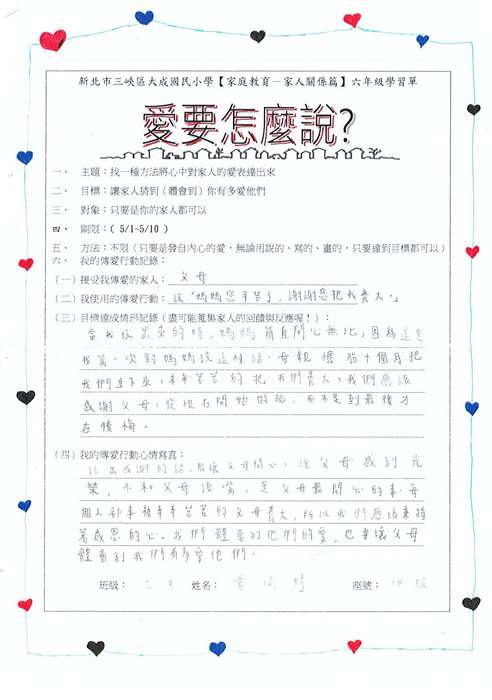 新北市三峽區大成國民小學【家庭教育－家人關係篇】六年級學習單
愛要怎麼說?
一、 主題：找一種方法將心中對家人的愛表達出來
二、 目標：讓家人猜到（體會到）你有多愛他們
三、 對象：只要是你的家人都可以
四、 期限：( 5/1~5/10 )
五、 方法：不限（只要是發自內心的愛，無論用說的、寫的、畫的，只要達到目標都可以）
六、 我的傳愛行動記錄：
（一）接受我傳愛的家人： 父母
（二）我使用的傳愛行動： 說「媽媽您辛苦了，謝謝您把我養大。」
（三）目標達成情形記錄（盡可能蒐集家人的回饋與反應喔！）：
當我說出來的時，媽媽簡直開心無比，因為這是
我第一次對媽媽說這種話。母親懷胎十個月把
我們生下來，辛辛苦苦的把我們養大，我們應該
感謝父母，從現在開始做起，而不是到最後才
在後悔。
（四）我的傳愛行動心情寫真：
說出感謝的話，能讓父母開心，讓父母感到光
榮，不和父母頂嘴，是父母最開心的事。每
個人都是被辛辛苦苦的父母養大，所以我們應該秉持
著感恩的心。我們體會到他們的愛，也要讓父母
體會到我們有多愛他們。
班級： 六 姓名： 座號：